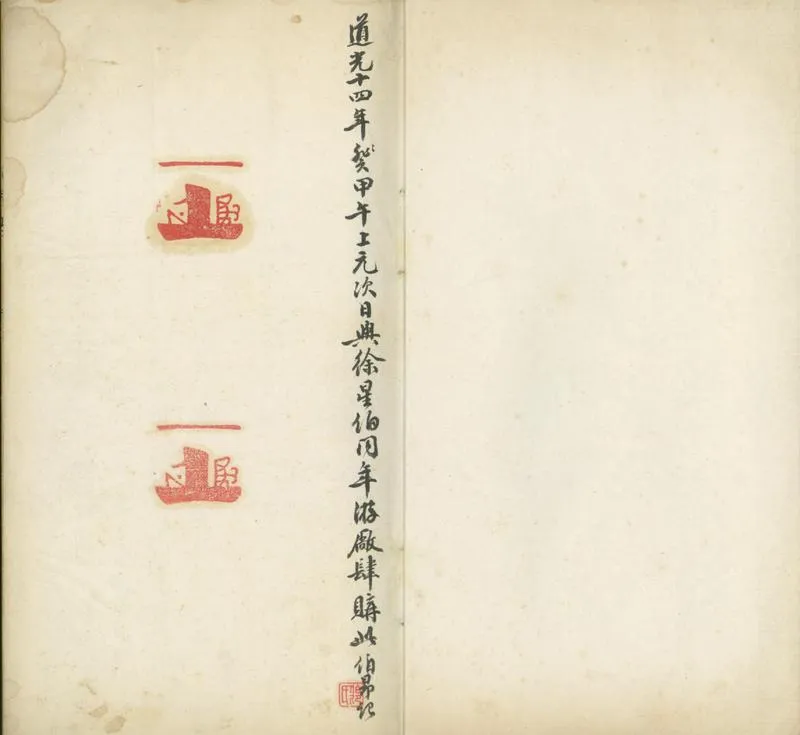 道光十四年癸甲午上元次日與徐星伯同年游廠肆購此伯昂記